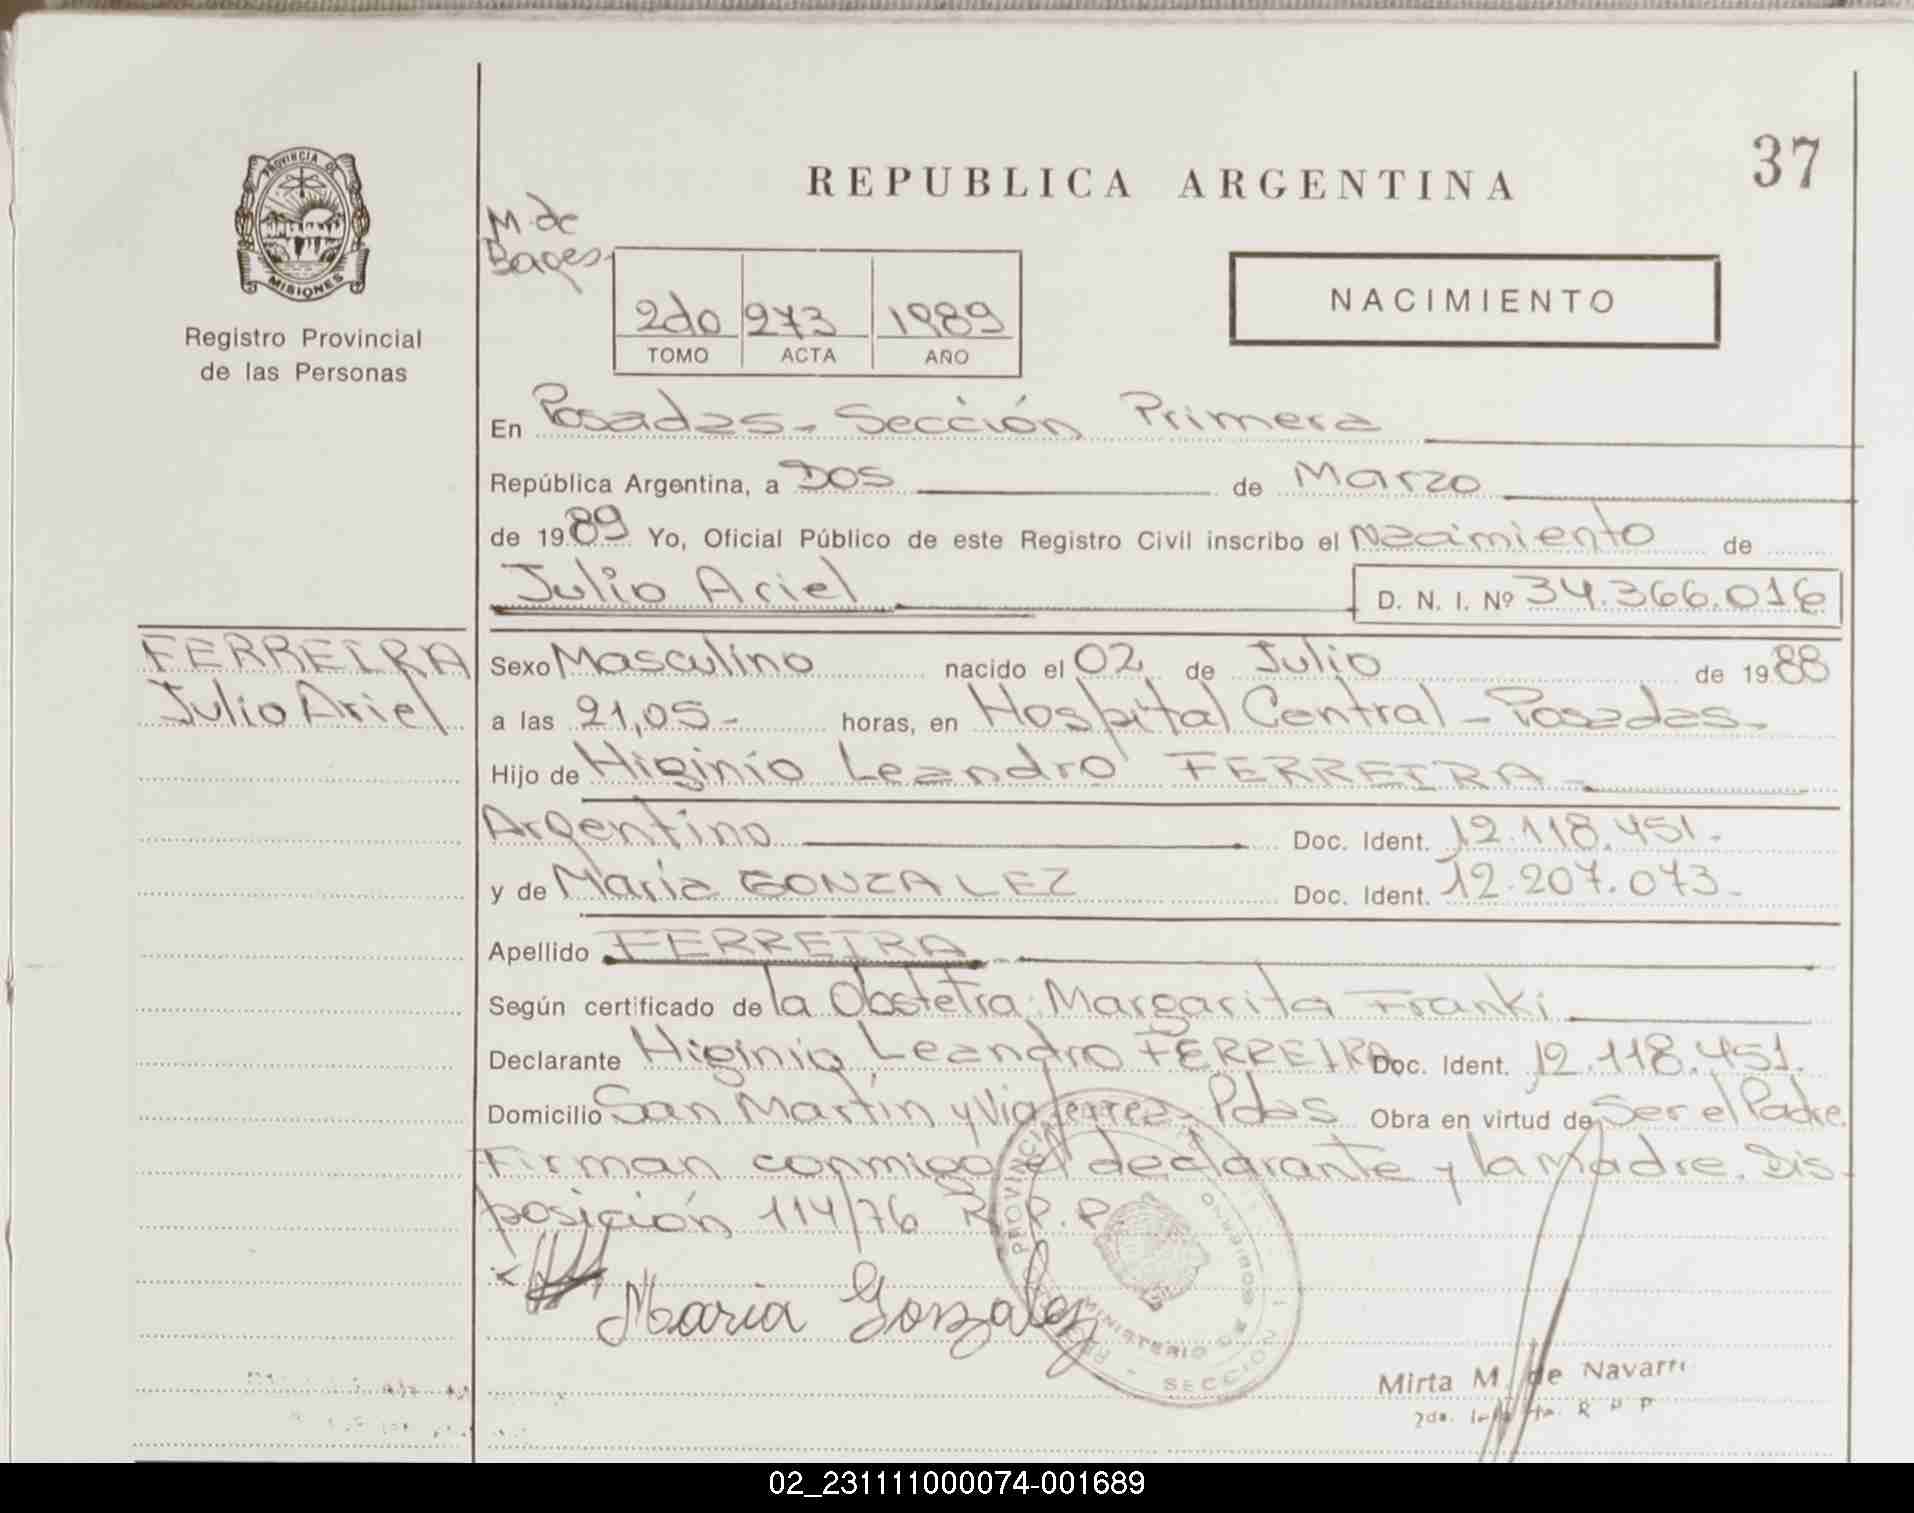 PROVINCIA DE
MISIONES
Registro Provincial
de las Personas
REPUBLICA ARGENTINA
37
M. de
Bages.
2do 273 1989
TOMO ACTA AÑO
NACIMIENTO
En Posadas - Sección Primera
República Argentina, a Dos de Marzo
de 1989 Yo, Oficial Público de este Registro Civil inscribo el Nacimiento de
Julio Ariel D. N. I. Nº 34.366.016
FERREIRA
Julio Ariel
Sexo Masculino nacido el 02 de Julio de 1988
a las 21,05- horas, en Hospital Central - Posadas-
Hijo de Higinio Leandro FERREIRA
Argentino Doc. Ident. 12.118.451.-
y de María GONZALEZ Doc. Ident. 12.207.073.-
Apellido FERREIRA
Según certificado de la Obstetra: Margarita Franki
Declarante Higinio Leandro FERREIRA Doc. Ident. 12.118.451.
Domicilio San Martín y Pdas Obra en virtud de Ser el Padre.
Firman conmigo el declarante y la Madre. Dis-
posición 114/76 R.P.P.
Maria Gonzalez
PROVINCIA
MINISTERIO DE GOBIERNO
SECCION 1
Mirta M. de
02_231111000074-001689